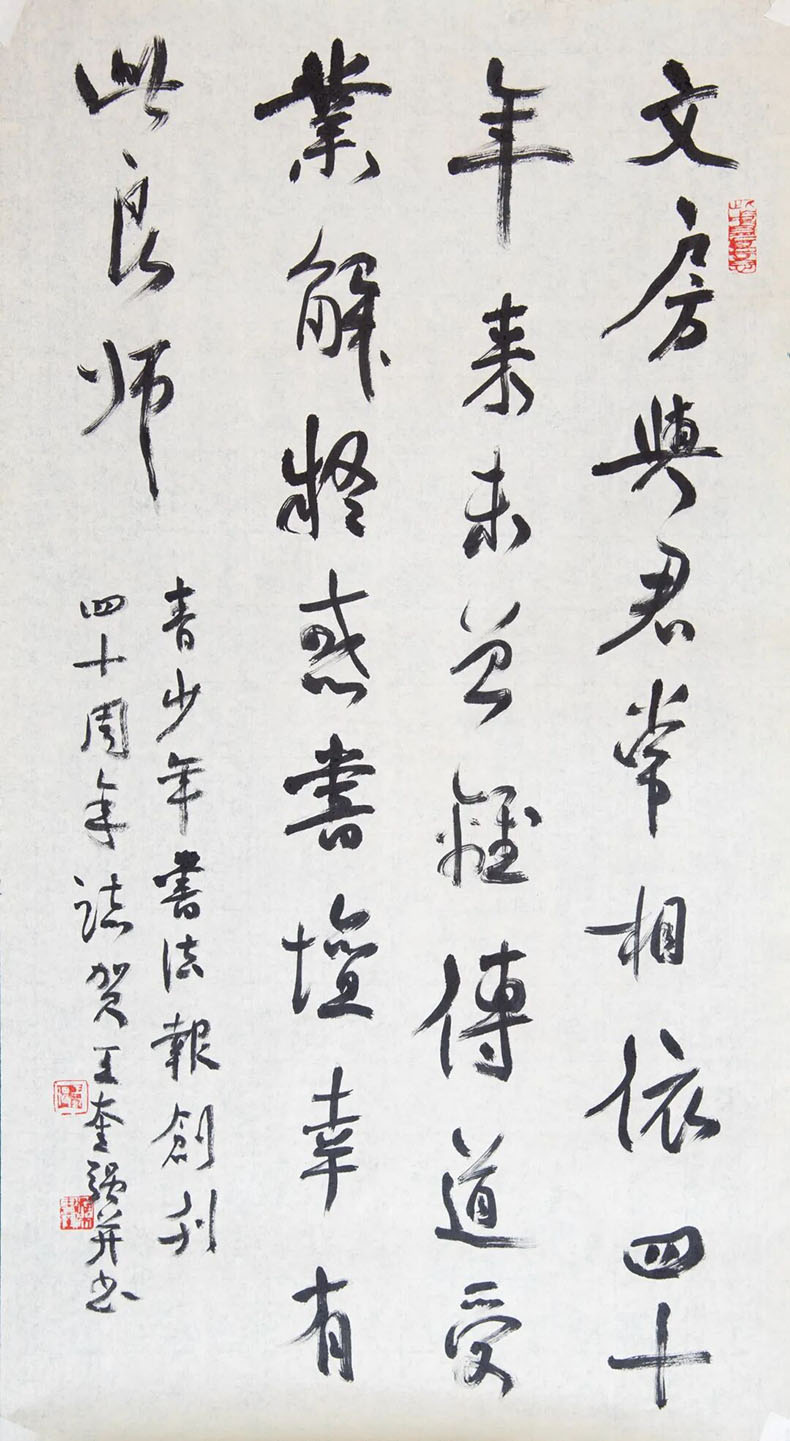 文房與君常相依四十
年来未曾離傳道受
業解疑惑書壇幸有
此良师
青少年書法報創刊
四十周年誌贺王奎强并书